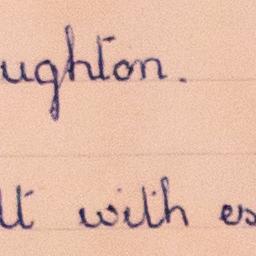 ughton.
lt with es